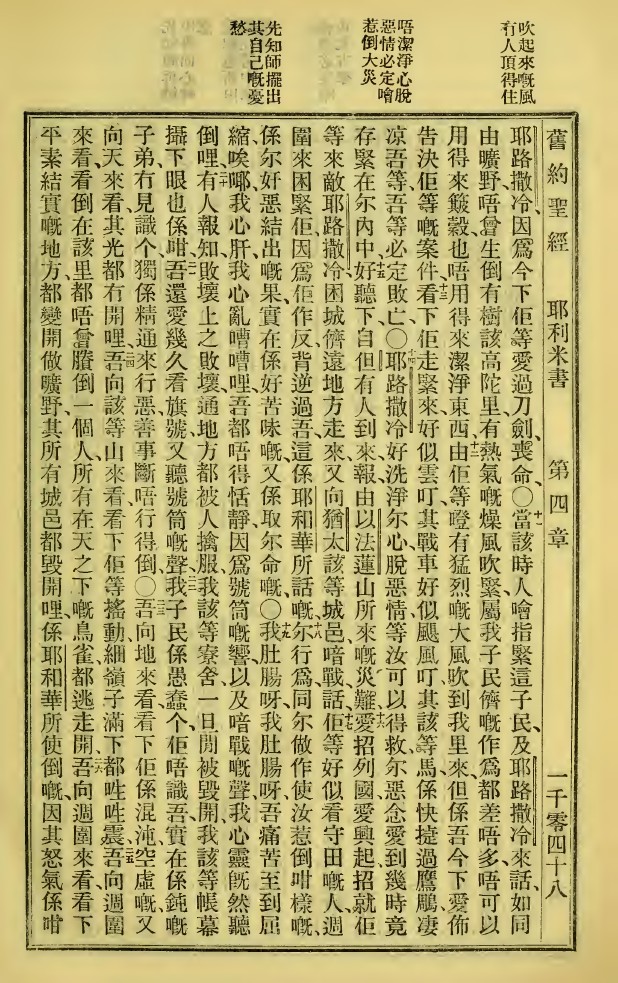 吹起來嘅風
冇人頂得住
唔潔淨心脫
惡情必定噲
惹倒大災
先知師擺出
其自己嘅憂
愁
舊約聖經 耶利米書 第四章 一千零四十八
耶路撒冷、因爲今下佢等愛過刀劍、喪命、〇十一當該時人噲指緊這子民、及耶路撒冷來話、如同
由曠野、唔曾生倒有樹該高陀里、有熱氣嘅燥風吹緊屬我子民儕嘅、作爲都差唔多、唔可以
用得來簸穀、也唔用得來潔淨東西、十二由佢等噔有猛烈嘅大風、吹到我里來、但係吾今下愛佈
告決佢等嘅案件、十三看下佢走緊來、好似雲叮、其戰車好似颶風叮、其該等馬、係快捷過鷹鵰、凄
凉吾等、吾等必定敗亡、〇十四耶路撒冷好洗淨尔心、脫惡情等汝可以得救、尔惡念愛到幾時竟
存緊在尔內中、十五好聽下自但有人到來報、由以法蓮山所來嘅災難、十六愛招列國、愛興起招就佢
等來敵耶路撒冷、困城儕遠地方走來、又向猶太該等城邑喑戰話、十七佢等好似看守田嘅人、週
圍來困緊佢、因爲佢作反、背逆過吾、這係耶和華所話嘅、十八尔行爲、同尔做作、使汝惹倒咁樣嘅、
係尔奸惡結出嘅果、實在係好苦味嘅、又係取尔命嘅、〇十九我肚腸呀、我肚腸呀、吾痛苦至到屈
縮唉哪、我心肝、我心亂嘈嘈哩、吾都唔得恬靜、因爲號筒嘅響、以及喑戰嘅聲、我心靈旣然聽
倒哩、二十有人報知敗壞上之敗壞、通地方都被人擒服、我該等寮舍、一旦間被毀開、我該等帳幕
攝下眼也係咁、二一吾還愛幾久看旗號、又聽號筒嘅聲、二二我子民係愚蠢个、佢唔識吾、實在係鈍嘅
子弟、冇見識个、獨係精通來行惡、善事斷唔行得倒、〇二三吾向地來看、看下佢係混沌空虛嘅、又
向天來看、其光都冇開哩、二四吾向該等山來看、看下佢等搖動、細嶺子滿下都㘗㘗震、二五吾向週圍
來看、看倒在該里都唔曾賸倒一個人、所有在天之下嘅鳥雀、都逃走開、二六吾向週圍來看、看下
平素結實嘅地方、都變開做曠野、其所有城邑都毀開哩、係耶和華所使倒嘅、因其怒氣係咁